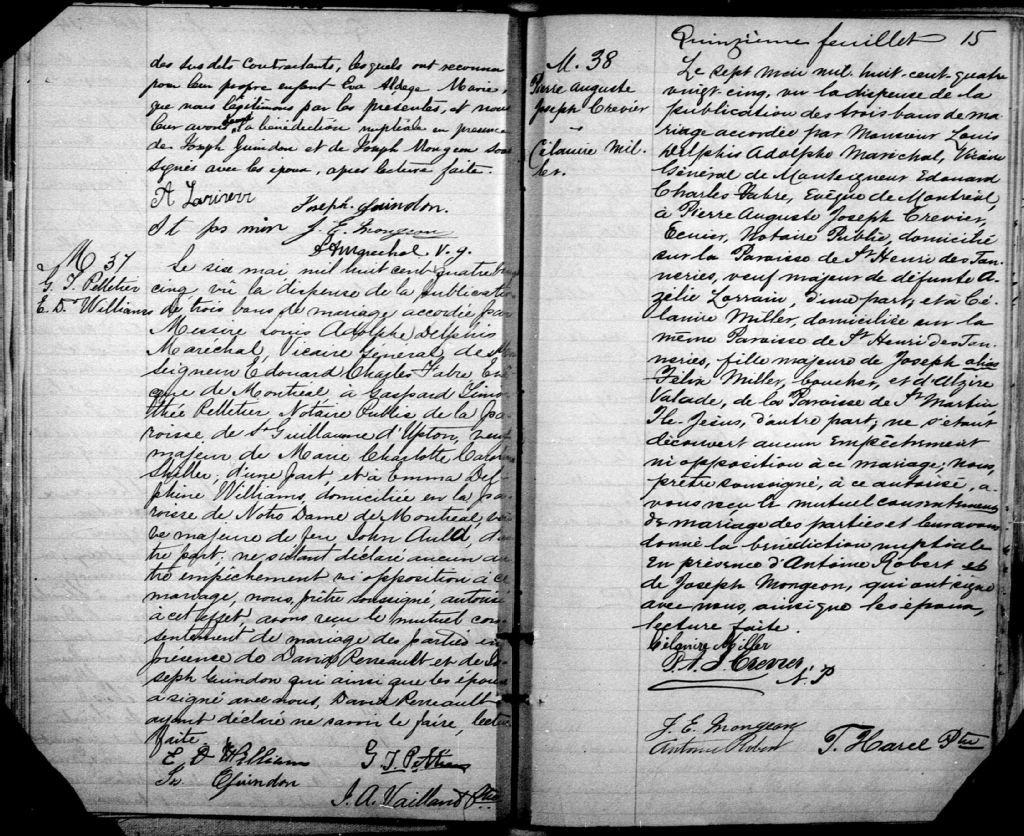 des susdits Contractants, lesquels ont reconnu
pour leur propre enfant Eva Aldage Marie,
que nous légitimons par les présentes, et nous
leur avons donné la bénédiction nuptiale en présence
de Joseph Guindon et de Joseph Mongeon sous
signés avec les époux, après lecture faite.
Joseph Guindon.
J. E. Mongeon
Maréchal V. g.
M 37
G T. Pelletier
E. D. Williams
Le six mai mil huit cent quatre vingt
cinq vû la dispense de la publication
de trois bans de mariage accordée par
Messire Louis Adolphe Delphis
Maréchal, Vicaire Général, de Mon
seigneur Edouard Charles Fabre Evê
que de Montréal, à Gaspard Timo
thée Pelletier Notaire Public de la pa
roisse de St Guillaume d'Upton, veuf
majeur de Marie Charlotte
Shiller, d'une part, et à Emma Del
phine Williams, domiciliée en la pa
roisse de Notre Dame de Montréal veu
ve majeure de feu John Auld, d'au
tre part; ne s'étant déclaré aucun au
tre empêchement ni opposition à ce
mariage, nous, prêtre soussigné, autorisé
à cet effet, avons reçu le mutuel con
sentement de mariage des parties en
présence de David Perreault et de Jo
seph Guindon qui ainsi que les époux
a signé avec nous, David Perreault
ayant déclaré ne savoir le faire, lecture
faite.
E D William
G T. Pelletier
Jos Guindon
J. A. Vaillant Ptre
Quinzième feuillet 15
M. 38
Pierre Auguste
Joseph Crevier
&
Célanire Mil-
ler.
Le sept Mai mil huit-cent-quatre
vingt-cinq, vu la dispense de la
publication des trois bans de ma
riage accordée par Monsieur Louis
Delphis Adolphe Maréchal, Vicaire
Général de Monseigneur Edouard
Charles Fabre, Evêque de Montréal,
à Pierre Auguste Joseph Crevier,
Ecuier, Notaire Public, domicilié
sur la Paroisse de St Henri des Tan-
neries, veuf majeur de défunte A-
zélie Lorrain, d'une part, et à Cé-
lanire Miller, domiciliée sur la
même Paroisse de St Henri des Tan-
neries, fille majeure de Joseph alias
Félix Miller, boucher, et d'Alzire
Valade, de la Paroisse de St Martin,
Ile-Jésus, d'autre part; ne s'étant
découvert aucun Empêchement
ni opposition à ce mariage; nous,
prêtre soussigné, à ce autorisé, a-
vons reçu le mutuel consentement
de mariage des parties et leur avons
donné la bénédiction nuptiale
En présence d'Antoine Robert et
de Joseph Mongeon, qui ont signé
avec nous, ainsi que les époux,
lecture faite.
Célanire Miller
P. A. J. Crevier
N. P
J. E. Mongeon
Antoine Robert
T. Harel Ptre